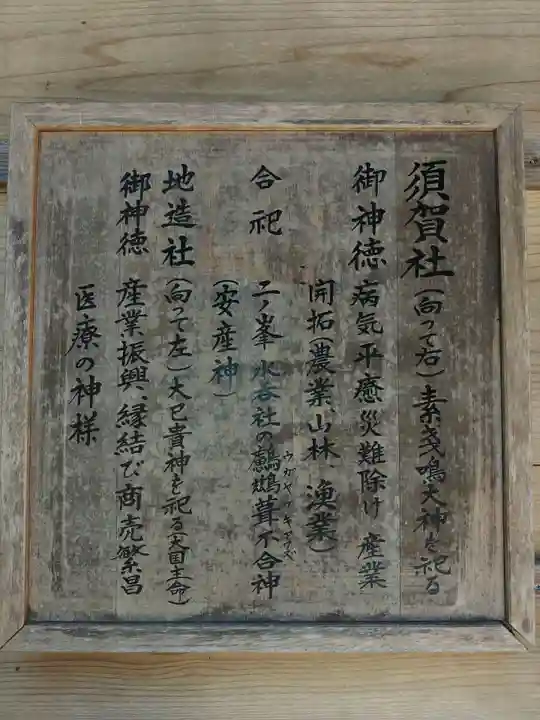 須賀社(向って右)素戔鳴大神を祀る
御神徳 病気平癒災難除け産業
開拓(農業、山林、漁業)
合祀 二ノ峯 水呑社の鸕鶿葺不合神
ウガヤフキアエズ
(安産神)
地造社(向って左)大已貴神を祀る(大国主命)
御神徳 産業振興、縁結び商売繁昌
医療の神様